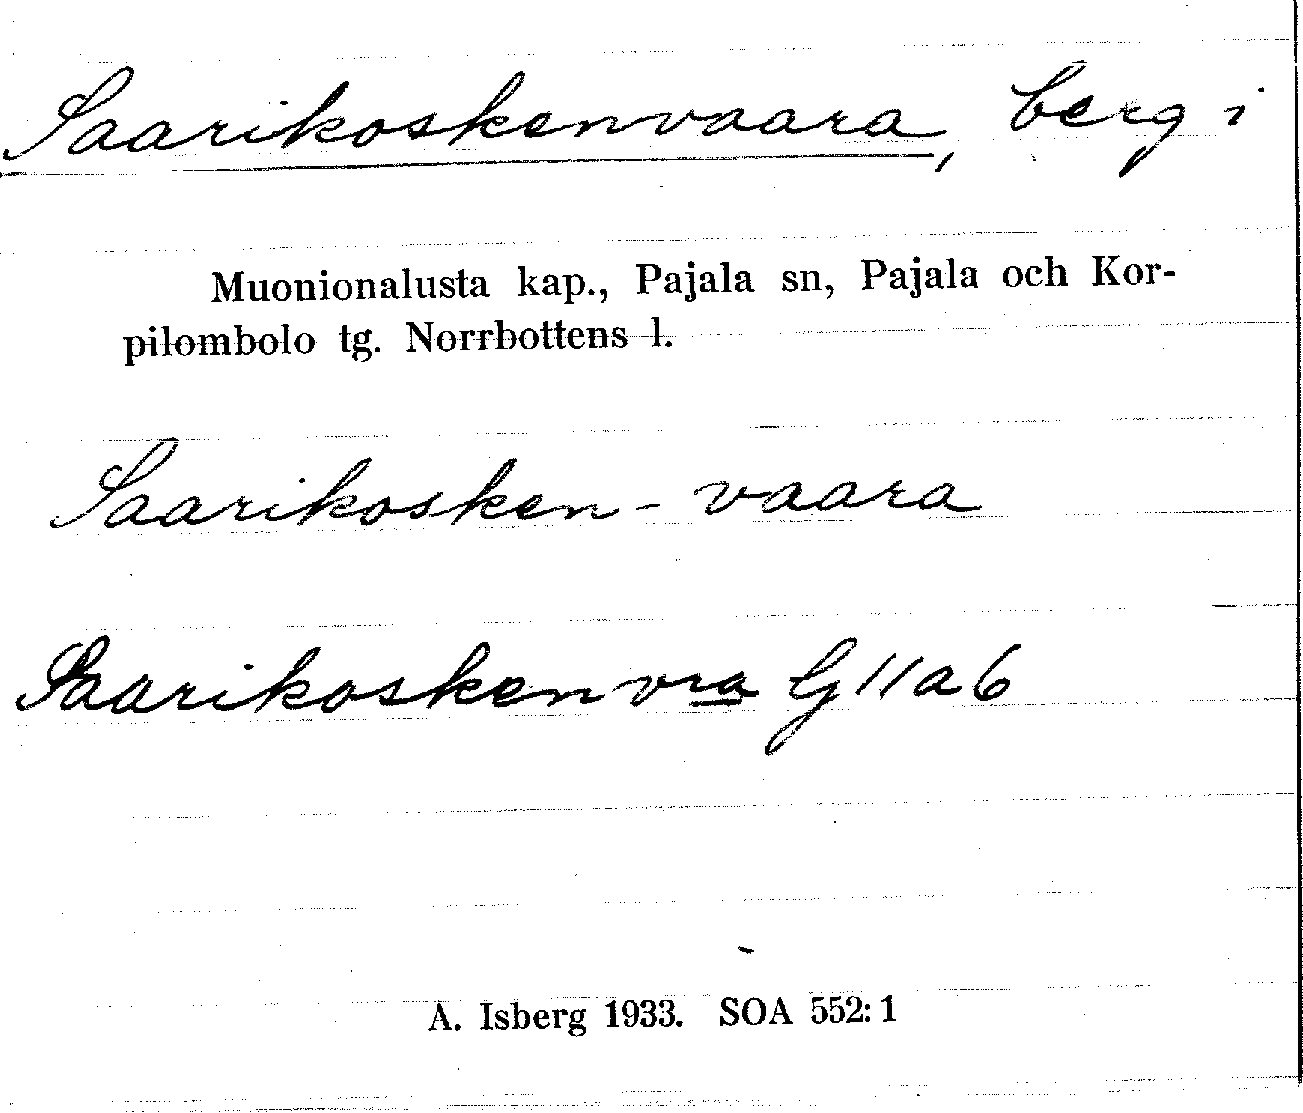 Saarikoskenvaara, berg i
Muonionalusta kap., Pajala sn, Pajala och Kor-
pilombolo tg. Norrbottens l.
Saarikosken-vaara
Saarikoskenvra G 11 a b
A. Isberg 1933. SOA 552: 1